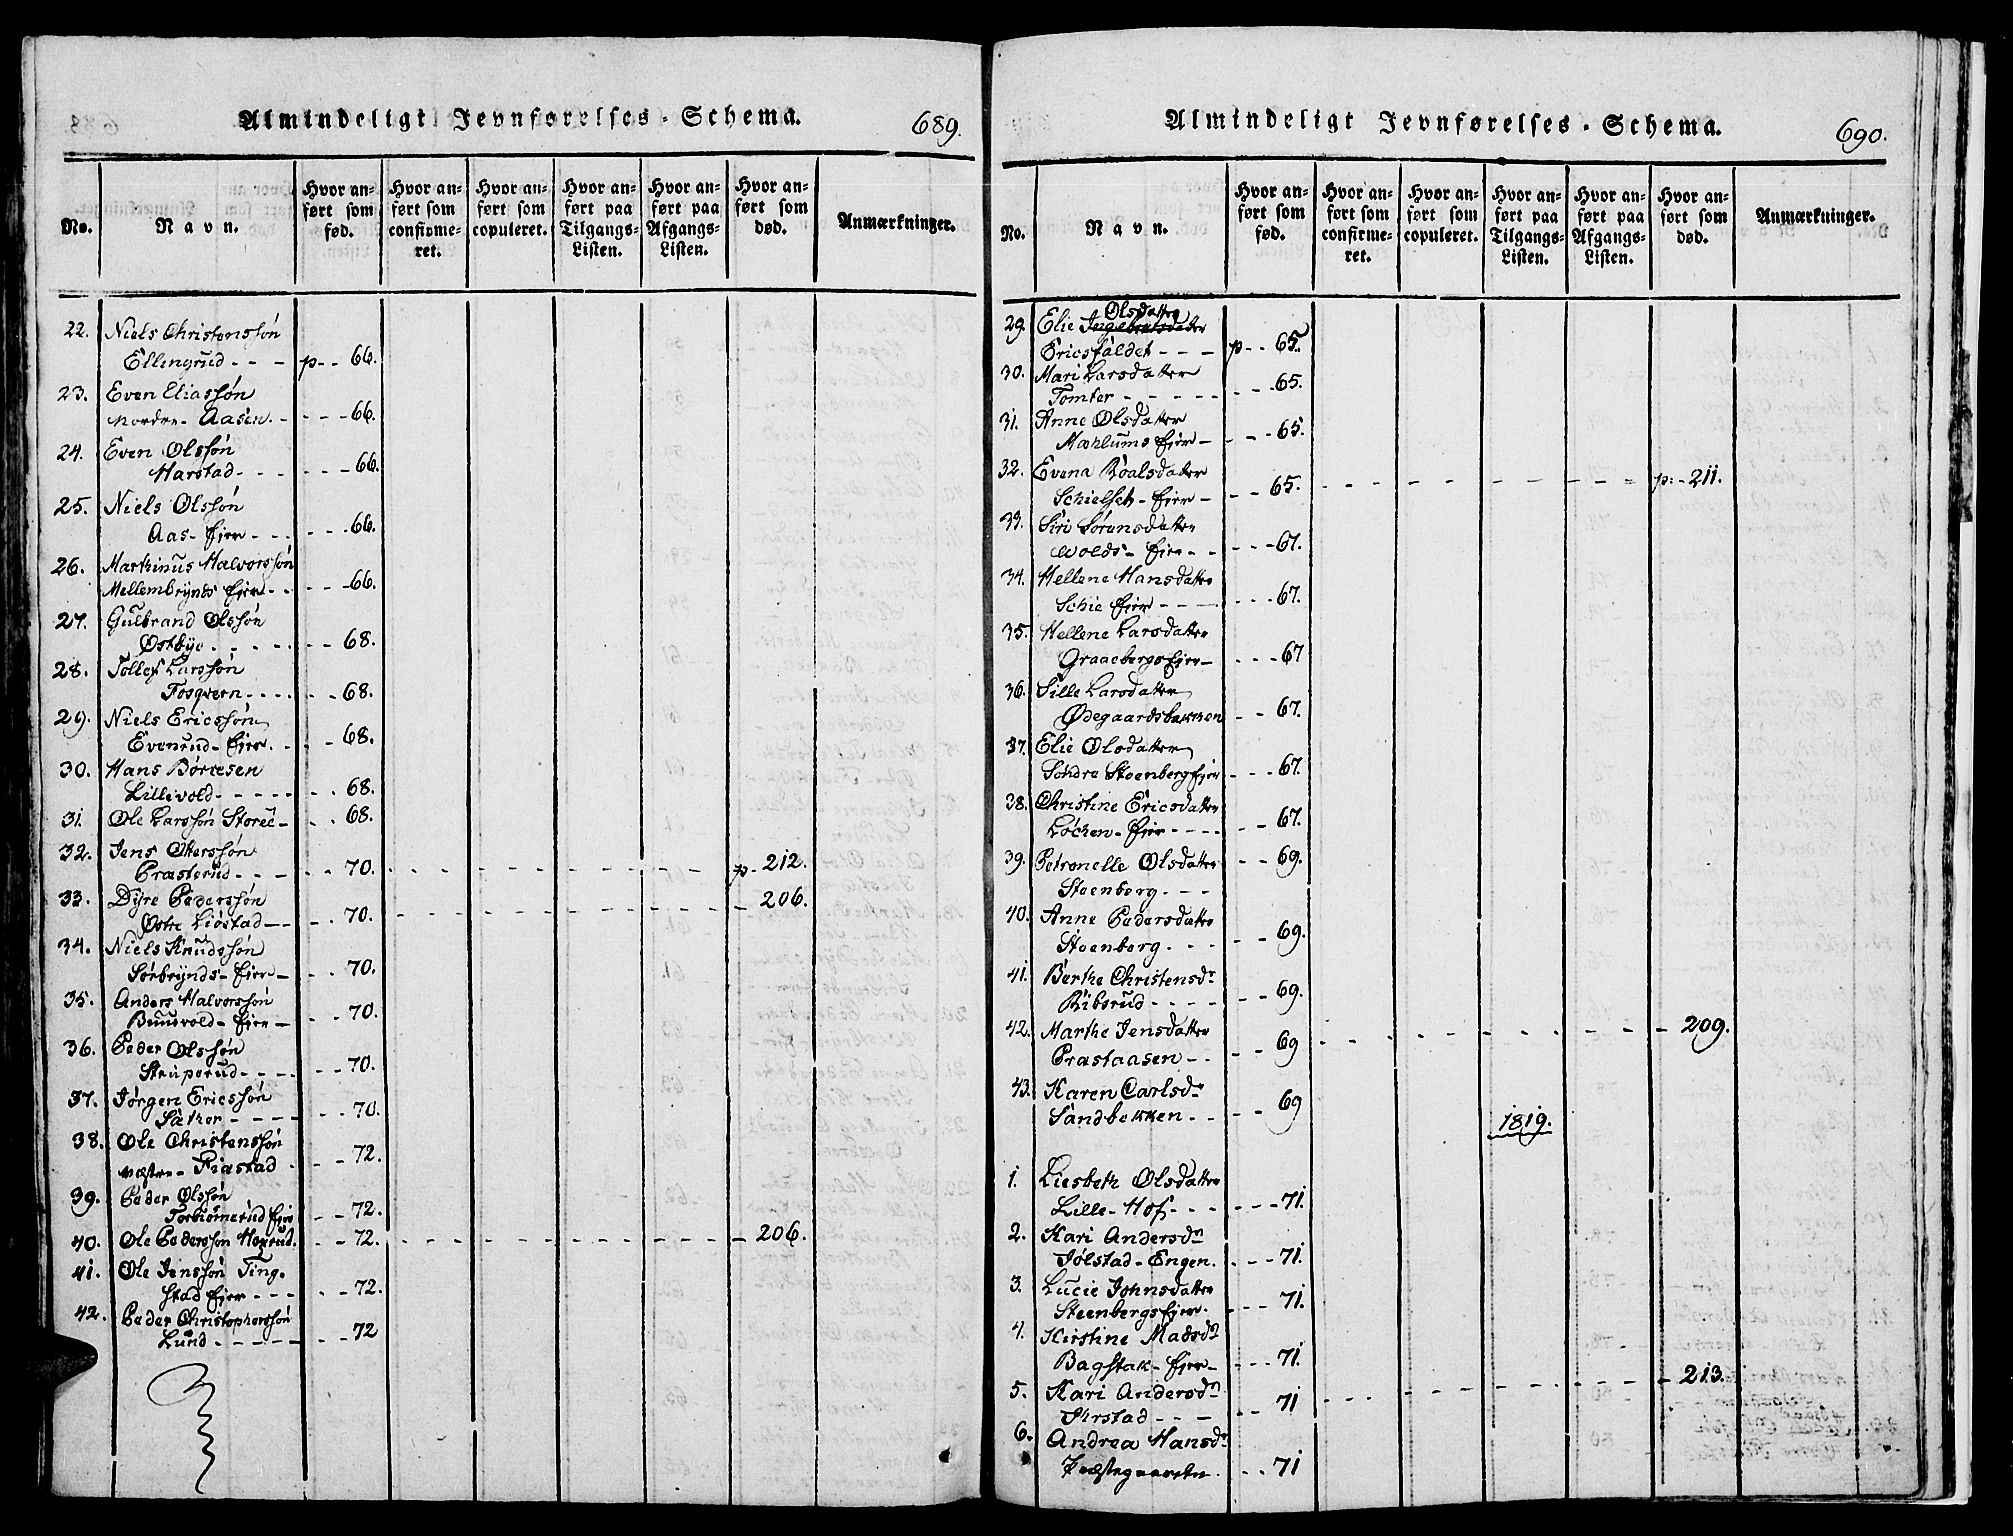 Almindeligt Jevnførelses-Schema. 689.
No. Navn. Hvor anført som fød. Hvor anført som confirmeret. Hvor anført som copuleret. Hvor anført paa Tilgangs-Listen. Hvor anført paa Afgangs-Listen. Hvor anført som død. Anmærkninger.
22. Niels Christenssøn
Ellingrud - - - p - - 66.
23. Even Eliassøn
Nordre - Aasen. - - - - 66.
24. Even Olssøn
Harstad - - - - - - 66.
25. Niels Olssøn
Aas - Eier - - - - - - 66.
26. Marthinus Halvorssøn
Mellembrynds Eier - - - - 66.
27. Gulbrand Olssøn
Østbye - - - - - - 68.
28. Tollef Larssøn
Fosqvern - - - - - - 68.
29. Niels Ericssøn
Evenrud - Eier. - - - 68.
30. Hans Børresen
Lillevold - - - - - - - 68.
31. Ole Larssøn Storee - - - 68.
32. Jens Oterssøn
Præsterud - - - - - 70. - - - - - - p - 212.
33. Dyre Pederssøn
Østre Liøstad - - - - 70. - - - - - - 206.
34. Niels Knudssøn
Sørbrynds - Eier - - - 70.
35. Anders Halvorssøn
Buusvold - Eier - - - 70.
36. Peder Olssøn
Stenperud - - - - - - 70.
37. Jørgen Ericssøn
Sæther - - - - - - 70.
38. Ole Christenssøn
Vestre - Fiæstad - - - 72.
39. Peder Olssøn
Torbiørnrud Eier - - 72.
40. Ole Pederssøn Hexrud. - - 72. - - - - - - 206.
41. Ole Jenssøn Ting-
stad Eier - - - - - 72.
42. Peder Christopherssøn
Lund - - - - - - - 72
Almindeligt Jevnførelses-Schema. 690.
No. Navn. Hvor anført som fød. Hvor anført som confirmeret. Hvor anført som copuleret. Hvor anført paa Tilgangs-Listen. Hvor anført paa Afgangs-Listen. Hvor anført som død. Anmærkninger.
Olsdatter
29. Elie Ingebretsdatter
Ericsfaldet - - - p - - 65.
30. Mari Larsdatter
Tomter - - - - - - - 65.
31. Anne Olsdatter
Mæhlums Eier - - - - 65.
32. Evena Roalsdatter
Schielset - Eier - - - 65. - - - - - - p. - 211.
33. Siri Sørensdatter
Wolds - Eier - - - - - 67.
34. Hellene Hansdatter
Schie Eier - - - - - - 67.
35. Hellene Larsdatter
Graaebergs Eier - - - - 67
36. Sille Larsdatter
Ødegaardsbakken - - 67.
37. Elie Olsdatter
Søndre Steenberg Eier - - - 67.
38. Christine Ericsdatter
Løchen - Eier - - - - - - 67.
39. Petronelle Olsdatter - - 69.
Steenberg. - - -
40. Anne Pedersdatter
Steenberg. - - - - - 69.
41. Berthe Christensdr
Ribsrud - - - - - - 69.
42. Marthe Jensdatter
Præstaasen - - - - 69 - - - - - - 209.
43. Karen Carlsdr
Sandbekken - - - - 69
1819.
1. Liesbeth Olsdatter
Lille - Hof - - - - - - 71.
2. Kari Andersdr
Jølstad - Engen. - - - 71.
3. Lucie Johnsdatter
Steenbergs Eier. - - - 71.
4. Kirstine Madsdr
Bagstak - Eier - - - - 71.
5. Kari Andersdr - - - - - - 213.
Jørstad - - - - - 71
6. Andrea Hansdr
Præstegaarden. - - 71